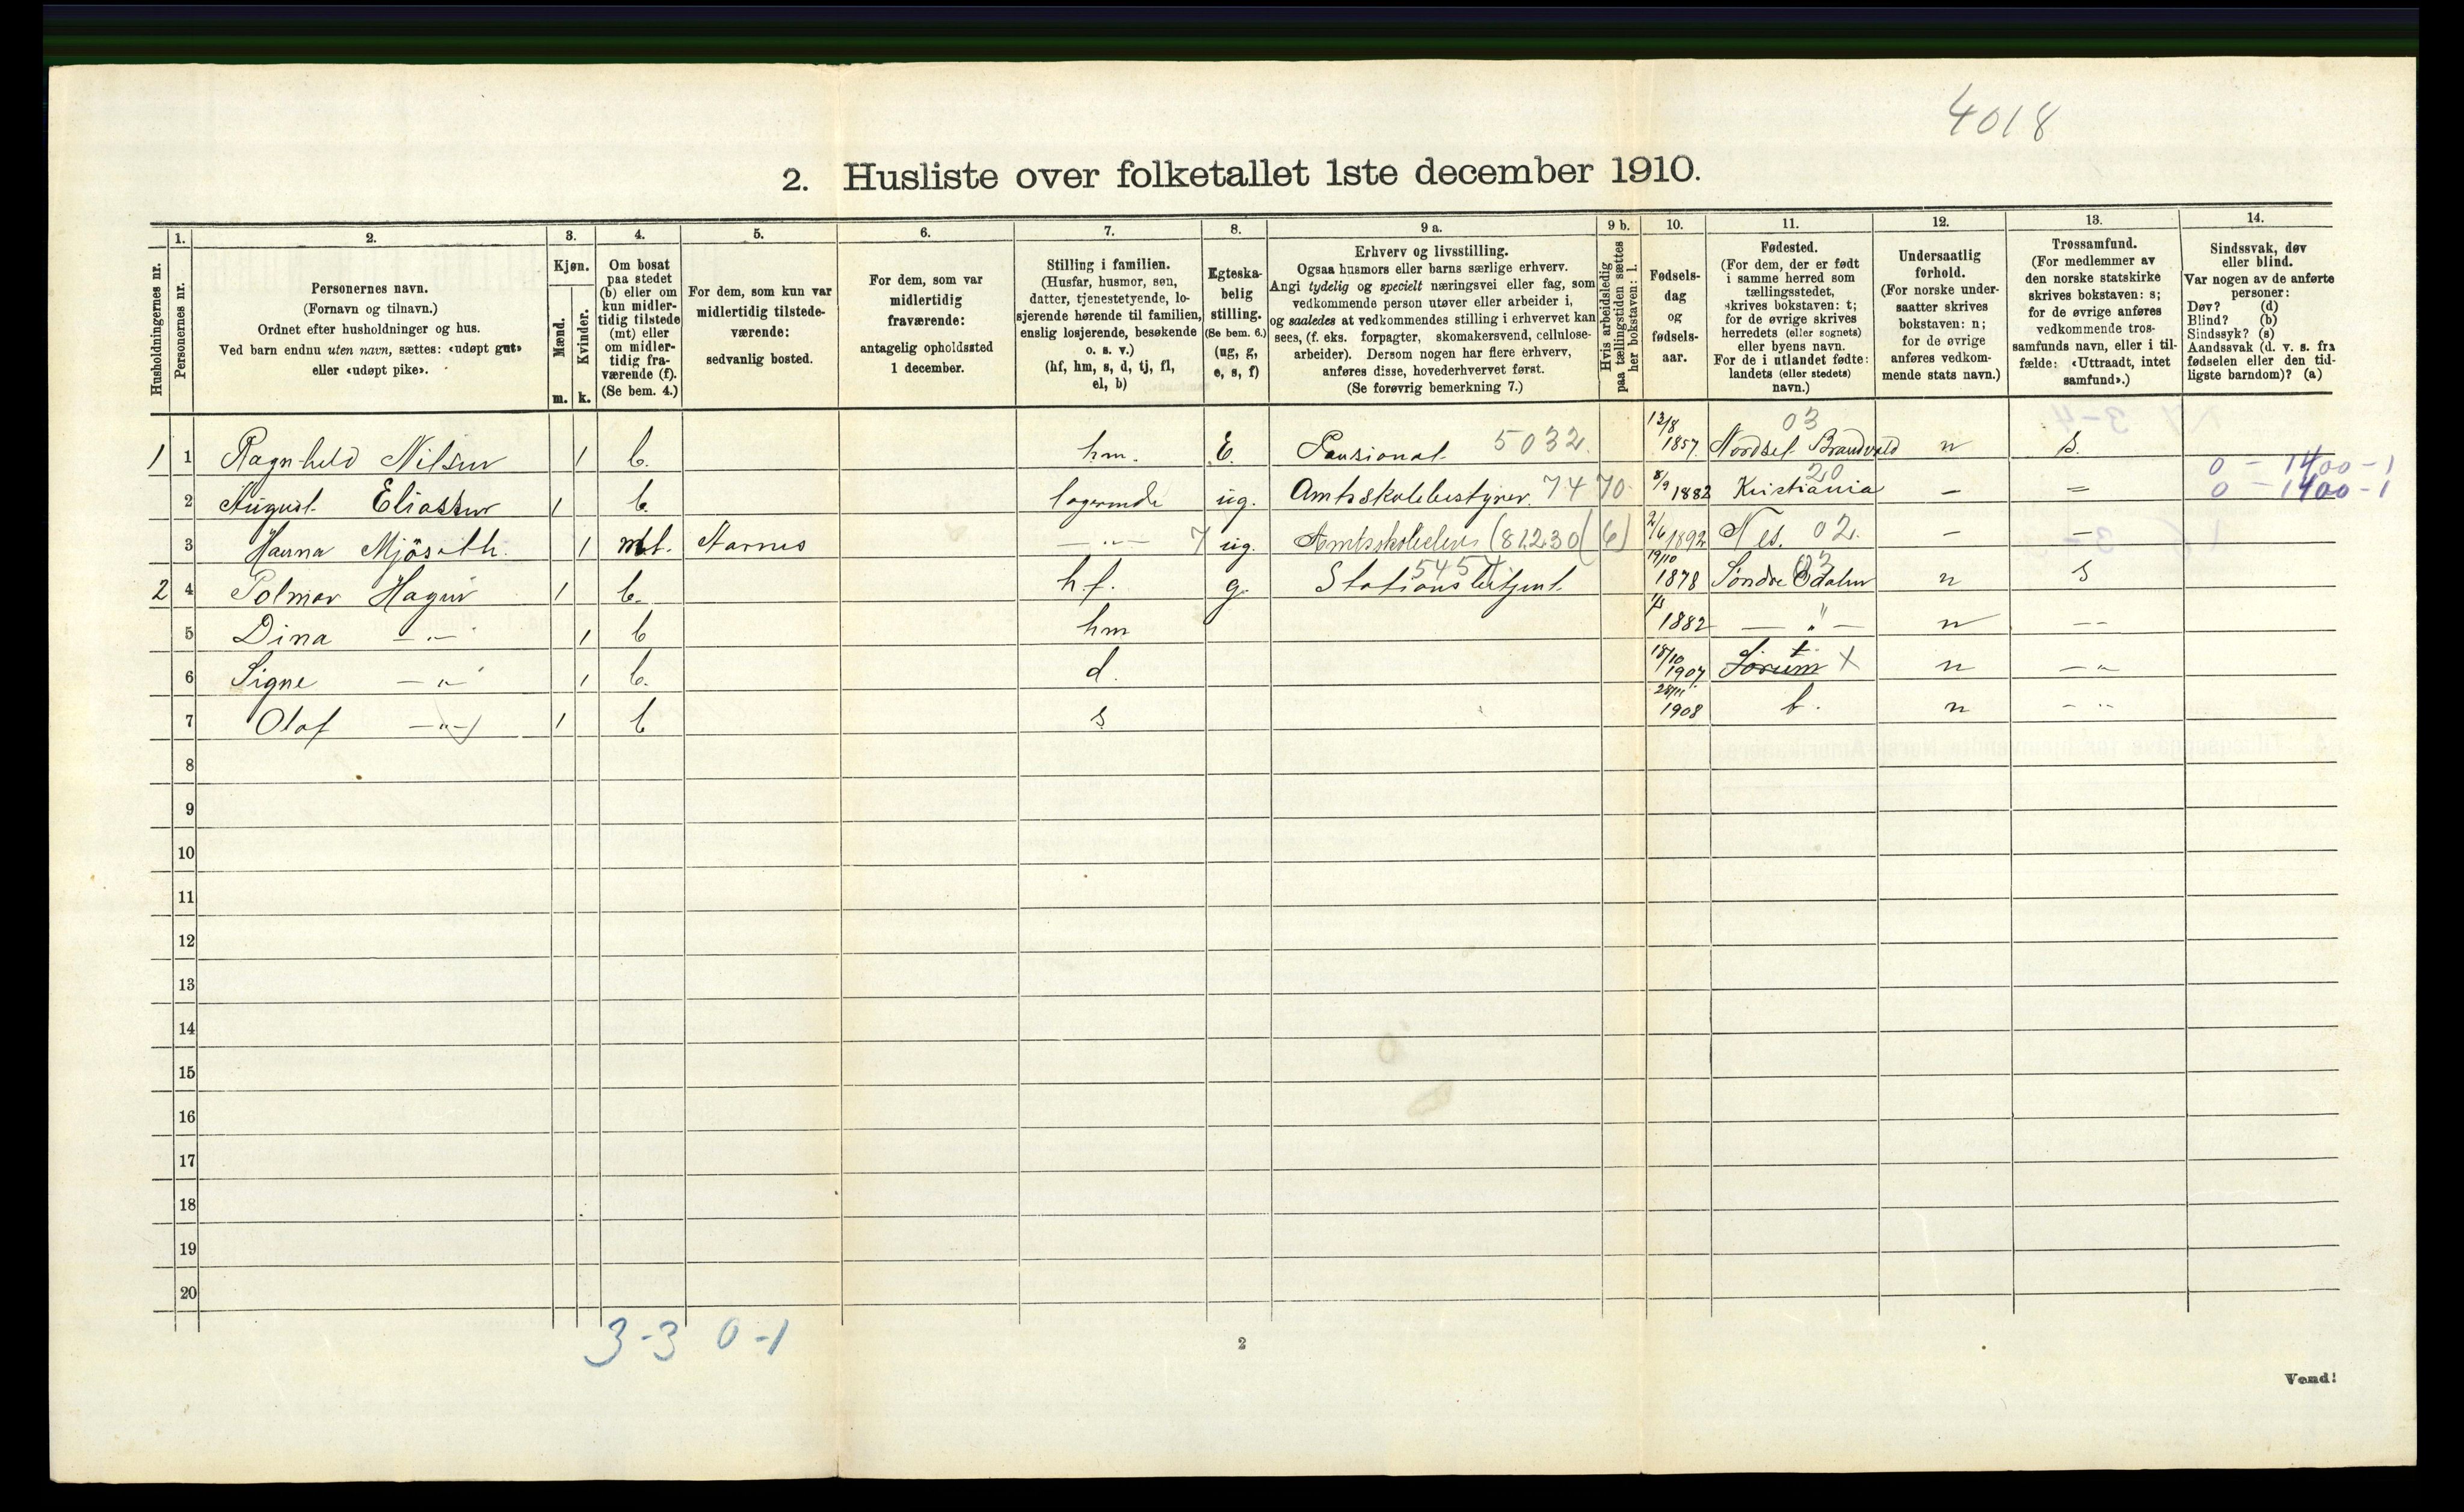 4018
2. Husliste over folketallet 1ste december 1910.
Husholdningernes nr.
1. Personernes nr.
2. Personernes navn.
(Fornavn og tilnavn.)
Ordnet efter husholdninger og hus.
Ved barn endnu uten navn, sættes: «udøpt gut»
eller «udøpt pike».
3. Kjøn.
Mænd. m.
Kvinder. k.
4. Om bosat
paa stedet
(b) eller om
kun midler-
tidig tilstede
(mt) eller
om midler-
tidig fra-
værende (f).
(Se bem. 4.)
5. For dem, som kun var
midlertidig tilstede-
værende:
sedvanlig bosted.
6. For dem, som var
midlertidig
fraværende:
antagelig opholdssted
1 december.
7. Stilling i familien.
(Husfar, husmor, søn,
datter, tjenestetyende, lo-
sjerende hørende til familien,
enslig losjerende, besøkende
o. s. v.)
(hf, hm, s, d, tj, fl,
el, b)
8. Egteska-
belig
stilling.
(Se bem. 6.)
(ug, g,
e, s, f)
9 a. Erhverv og livsstilling.
Ogsaa husmors eller barns særlige erhverv.
Angi tydelig og specielt næringsvei eller fag, som
vedkommende person utøver eller arbeider i,
og saaledes at vedkommendes stilling i erhvervet kan
sees, (f. eks. forpagter, skomakersvend, cellulose-
arbeider). Dersom nogen har flere erhverv,
anføres disse, hovederhvervet først.
(Se forøvrig bemerkning 7.)
9 b. Hvis arbeidsledig
paa tællingstiden sættes
her bokstaven: l.
10. Fødsels-
dag
og
fødsels-
aar.
11. Fødested.
(For dem, der er født
i samme herred som
tællingsstedet,
skrives bokstaven: t;
for de øvrige skrives
herredets (eller sognets)
eller byens navn.
For de i utlandet fødte:
landets (eller stedets)
navn.)
12. Undersaatlig
forhold.
(For norske under-
saatter skrives
bokstaven: n;
for de øvrige
anføres vedkom-
mende stats navn.)
13. Trossamfund.
(For medlemmer av
den norske statskirke
skrives bokstaven: s;
for de øvrige anføres
vedkommende tros-
samfunds navn, eller i til-
fælde: «Uttraadt, intet
samfund».)
14. Sindssvak, døv
eller blind.
Var nogen av de anførte
personer:
Døv? (d)
Blind? (b)
Sindssyk? (s)
Aandssvak (d. v. s. fra
fødselen eller den tid-
ligste barndom)? (a)
1 1 Ragnhild Nilsen 1 b. hm. E. Pensionat 5032. 13/8 1857. Nordset Brandvold 03 n s.
0 - 1400 - 1
2 August Eliassen 1 b. logerende ug. Amtsskolebestyrer. 7470 8/9 1882 Kristiania 20 — = 0 - 1400 - 1
3 Hanna Mjøseth. 1 mt. Aarnes — „ — 7 ug. Amtsskoleelev (81230 (6) 2/6 1892 Nes. 02. — —
2 4 Polmar Hagen 1 b. hf. g. Stationsbetjent 5457 19/10 1878 Søndre Odalen 03 n s
5 Dina — „ — 1 b hm 1/3 1882 — „ — n — —
6 Signe — „ — 1 b. d. 18/10 1907 Sørum t. X n — „
7 Olaf — „ — 1 b s 28/11 1908 t. n — „
8
9
10
11
12
13
14
15
16
17
18
19
20
3-3 0-1
2
Vend!